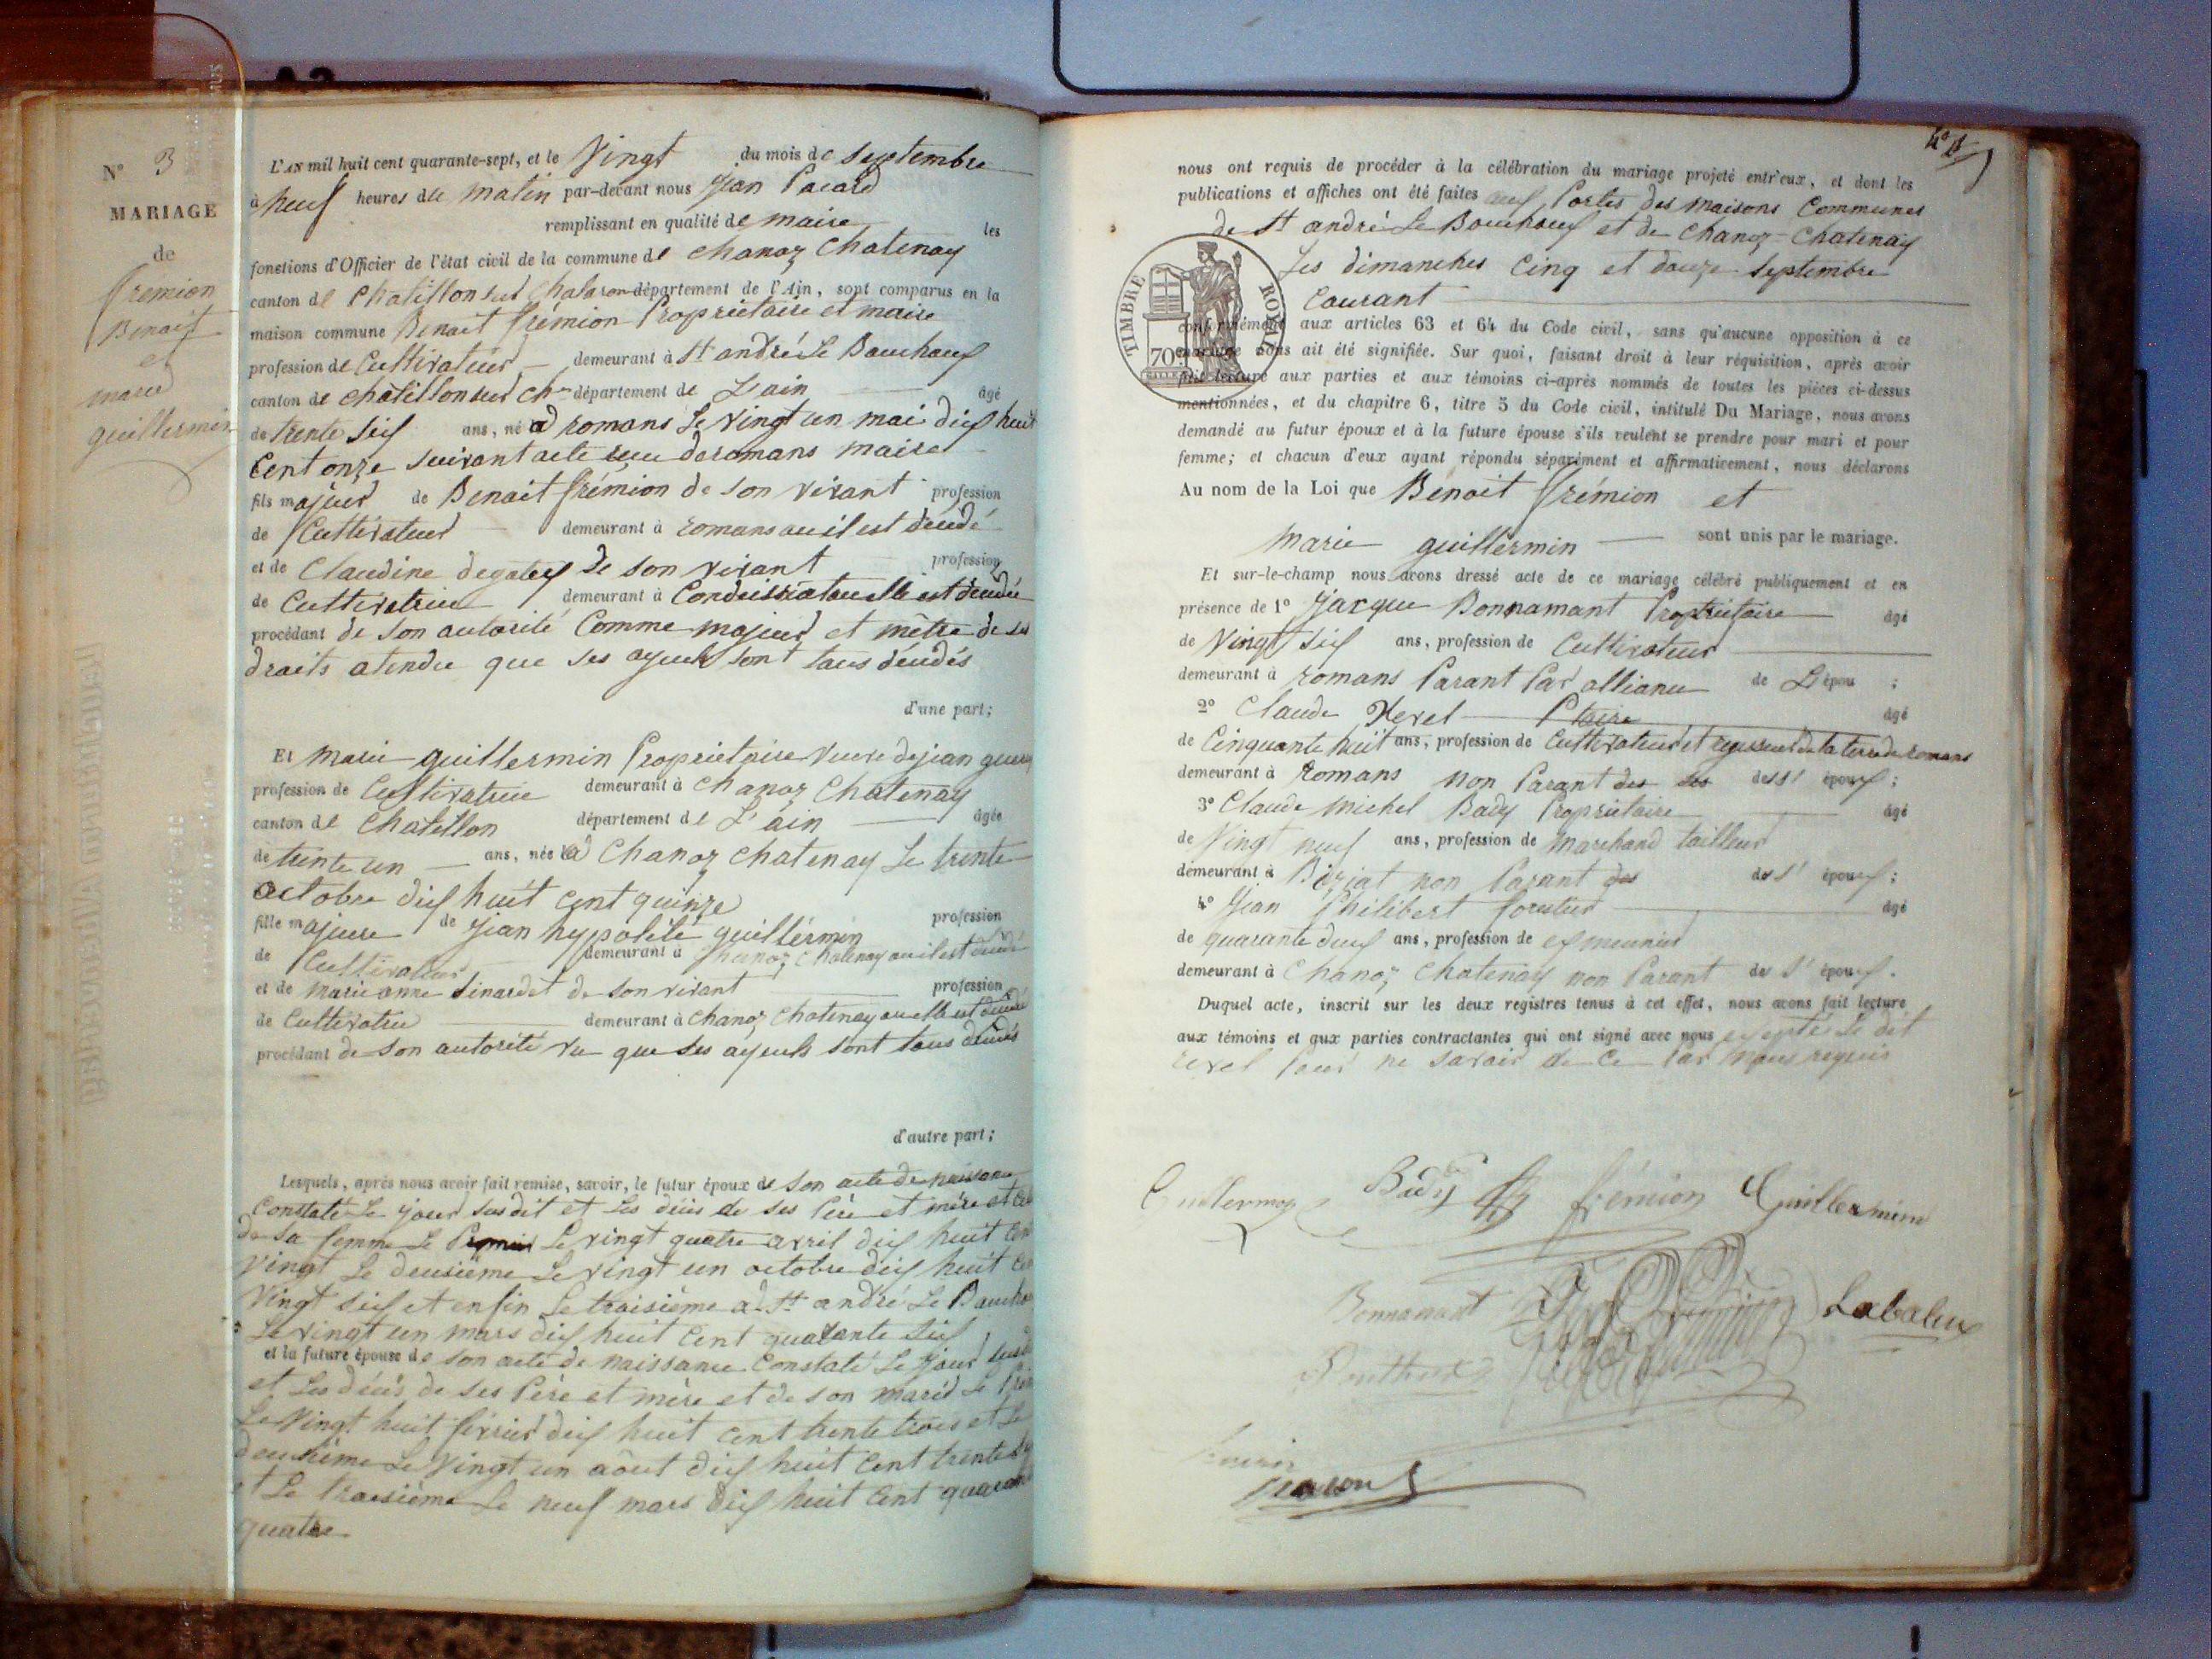 N° 3
MARIAGE
de
frémion
Benoit
et
marie
guillermin
L'AN mil huit cent quarante-sept, et le Vingt du mois de Septembre
à neuf heures du matin par-devant nous Jean Pacard
remplissant en qualité de maire les
fonctions d'Officier de l'état civil de la commune de chanoz Chatenay
canton de Chatillon sur Chalaron département de l'Ain, sont comparus en la
maison commune Benoit frémion Propriétaire et maire
profession de Cultivateur demeurant à St andré Le Bouchoux
canton de chatillon sur Chne département de L'ain âgé
de trente six ans, né à romans Le vingt un mai dix huit
Cent onze suivant acte reçu de romans maire
fils majeur de Benoit frémion de son vivant profession
de Cultivateur demeurant à romans ou il est deudé
et de Claudine degatey de son vivant profession
de Cultivatrice demeurant à Condeissiat ou elle est deudée
procédant de son autorité Comme majeur et mètre de ses
droits atendu que ses ayeuls sont tous déudés
d'une part;
Et marie guillermin Propriétaire veuve de jean
profession de Cultivatrice demeurant à Chanoz Chatenay
canton de Chatillon département de L'ain âgée
de trente un ans, née à Chanoz chatenay Le trente
octobre dix huit cent quinze
fille majeure de jean hypolite guillermin profession
de Cultivateur demeurant à chanoz Chatenay ou il est deudé
et de marie anne Sinardet de son vivant profession
de Cultivatrice demeurant à Chanoz Chatenay ou elle est deudée
procédant de son autorité vu que ses ayeuls sont tous déudés
d'autre part;
Lesquels, après nous avoir fait remise, savoir, le futur époux de son acte de naissance
Constaté Le jour susdit et Les déüs de ses Père et mère et
de sa femme Le Premier Le vingt quatre avril dix huit Cent
vingt Le deusième Le vingt un octobre dix huit Cent
Vingt six et enfin Le troisième à St andré Le Boucho
Le vingt un mars dix huit Cent quarante Six
et la future épouse de son acte de naissance Constaté Le jour susd
et Les déüs de ses Père et mère et de son marid Le
Le Vingt huit févrie dix huit Cent trente trois et Le
deusième Le vingt un août dix huit Cent trente
et Le troisième Le neuf mars dix huit Cent quarante
quatre
nous ont requis de procéder à la célébration du mariage projeté entr'eux, et dont les
publications et affiches ont été faites aux Portes des maisons Communes
de St andré Le Bouchoux et de Chanoz-Chatenay
Les dimanches Cinq et douze septembre
Courant
TIMBRE ROYAL
70
conformément aux articles 63 et 64 du Code civil, sans qu'aucune opposition à ce
mariage nous ait été signifiée. Sur quoi, faisant droit à leur réquisition, après avoir
fait lecture aux parties et aux témoins ci-après nommés de toutes les pièces ci-dessus
mentionnées, et du chapitre 6, titre 5 du Code civil, intitulé Du Mariage, nous avons
demandé au futur époux et à la future épouse s'ils veulent se prendre pour mari et pour
femme; et chacun d'eux ayant répondu séparément et affirmativement, nous déclarons
Au nom de la Loi que Benoit frémion et
marie guillermin sont unis par le mariage.
Et sur-le-champ nous avons dressé acte de ce mariage célébré publiquement et en
présence de 1° Jacque Bonnamant Propriétaire âgé
de Vingt six ans, profession de Cultivateur
demeurant à romans Parant Par alliance de L'épou ;
2° Claude Revel Ptaire âgé
de Cinquante huit ans, profession de Cultivateur et regisseur de la terre de romans
demeurant à Romans non Parant des dess' époux ;
3° Claude Michel Bady Propriétaire âgé
de Vingt neuf ans, profession de Marchand tailleur
demeurant à Biziat non Parant des des s' époux ;
4° Jean Philibert âgé
de quarante deux ans, profession de ex meunier
demeurant à Chanoz Chatenay non Parant des s' époux.
Duquel acte, inscrit sur les deux registres tenus à cet effet, nous avons fait lecture
aux témoins et aux parties contractantes qui ont signé avec nous exepté Le dit
revel Pour ne savoir de Ce Par Nous requis
Bady frémion Guillermin
Bonnamant Labalm